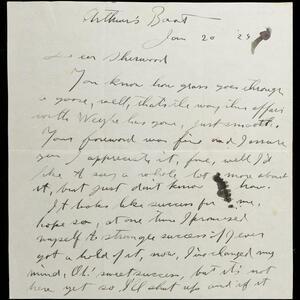 Arthur's Boat
Jan 20 '29
Dear Sherwood
You know how grass goes through
a goose, well, that's the way this affair
with Weyhe has gone, just smooth.
Your foreword was fine and I assure
you I appreciate it, fine, well I'd
like to say a whole lot more about
it, but just don't know how.
It looks like success for me,
hope so, at one time I promised
myself to strangle success if I ever
got a hold of it, now, I've changed my
mind, Oh! sweet success, but it's not
here yet so I'll shut up and if it